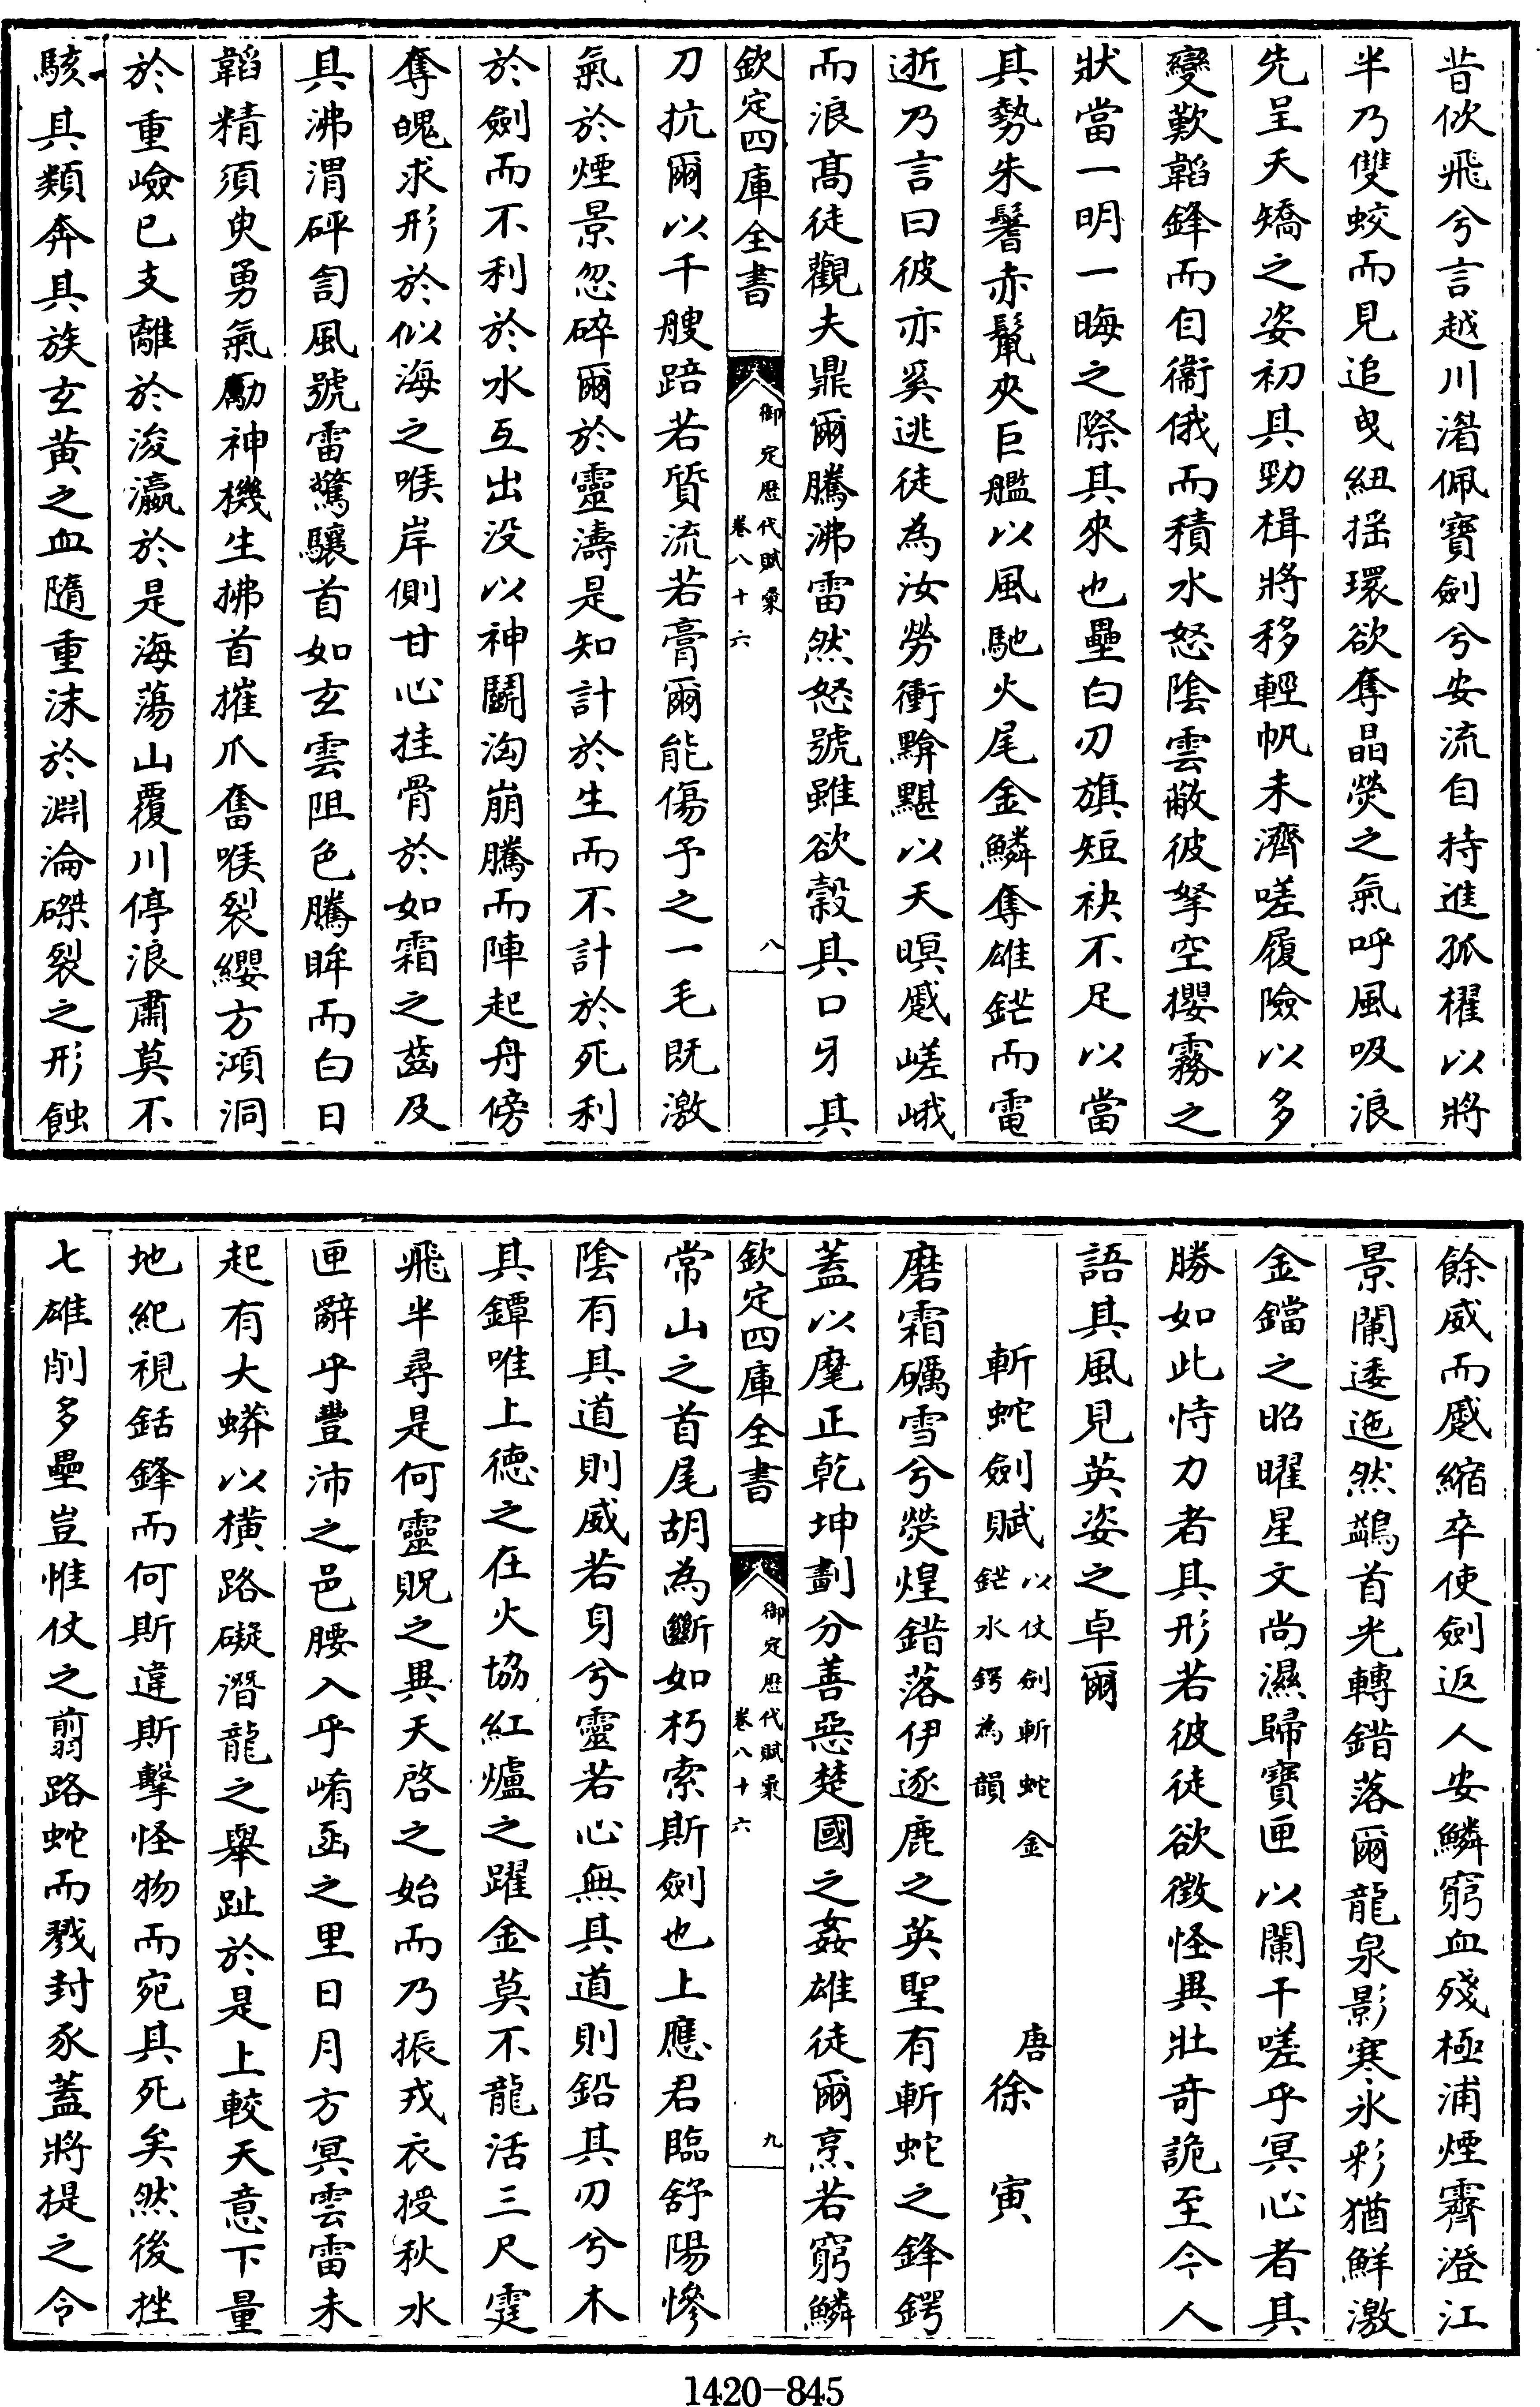 昔佽飛兮言越川濳佩寶劍兮安流自持進孤櫂以將
半乃雙蛟而見追曳紐揺環欲奪晶熒之氣呼風吸浪
先呈夭矯之姿初其勁楫將移輕帆未濟嗟履險以多
變歎韜鋒而自衞俄而積水怒隂雲蔽彼拏空攖霧之
狀當一明一晦之際其來也壘白刃旗短袂不足以當
其勢朱鬐赤鬛夾巨艦以風馳火尾金鱗奪雄鋩而電
逝乃言曰彼亦奚逃徒為汝勞衝黭黮以天暝蹙嵯峨
而浪髙徒觀夫鼎爾騰沸雷然怒號雖欲㝅其口牙其
欽定四庫全書
御定歴代賦彙
卷八十六
八
刀抗爾以千艘踣若質流若膏爾能傷予之一毛既激
氣於煙景忽碎爾於靈濤是知計於生而不計於死利
於劍而不利於水互出没以神鬬洶崩騰而陣起舟傍
奪魄求形於似海之喉岸側甘心挂骨於如霜之齒及
其沸渭砰訇風號雷驚驤首如玄雲阻色騰眸而白日
韜精須臾勇氣勵神機生拂首摧爪奮喉裂纓方澒洞
於重嶮已支離於浚瀛於是海蕩山覆川停浪肅莫不
駭其類奔其族玄黄之血隨重沫於淵淪磔裂之形蝕
餘威而蹙縮卒使劍返人安鱗窮血殘極浦煙霽澄江
景闌逶迤然鷁首光轉錯落爾龍泉影寒氷彩猶鮮激
金鐺之昭曜星文尚濕歸寶匣以闌干嗟乎冥心者其
勝如此恃力者其形若彼徒欲徴怪異壯竒詭至今人
語其風見英姿之卓爾
斬蛇劍賦以仗劍斬蛇金鋩水鍔為韻
唐徐寅
磨霜礪雪兮熒煌錯落伊逐鹿之英聖有斬蛇之鋒鍔
蓋以麾正乾坤劃分善惡楚國之姦雄徒爾烹若窮鱗
欽定四庫全書
御定歴代賦彙
卷八十六
九
常山之首尾胡為斷如朽索斯劍也上應君臨舒陽慘
隂有其道則威若身兮靈若心無其道則鉛其刃兮木
其鐔唯上徳之在火協紅爐之躍金莫不龍活三尺霆
飛半尋是何靈貺之異天啓之始而乃振戎衣授秋水
匣辭乎豐沛之邑腰入乎崤函之里日月方冥雲雷未
起有大蟒以横路礙潛龍之舉趾於是上較天意下量
地紀視銛鋒而何斯違斯擊怪物而宛其死矣然後挫
七雄削多壘豈惟仗之翦路蛇而戮封豕蓋將提之令
1420-845